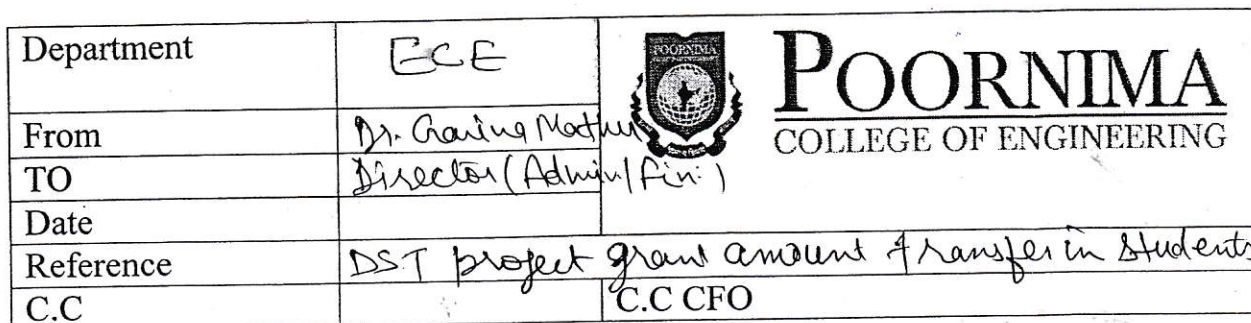 Department ECE
POORNIMA
POORNIMA
COLLEGE OF ENGINEERING
From Dr. Garima Mathur
TO Director (Admin/Fin.)
Date
Reference DST project grant amount transfer in students
C.C C.C CFO